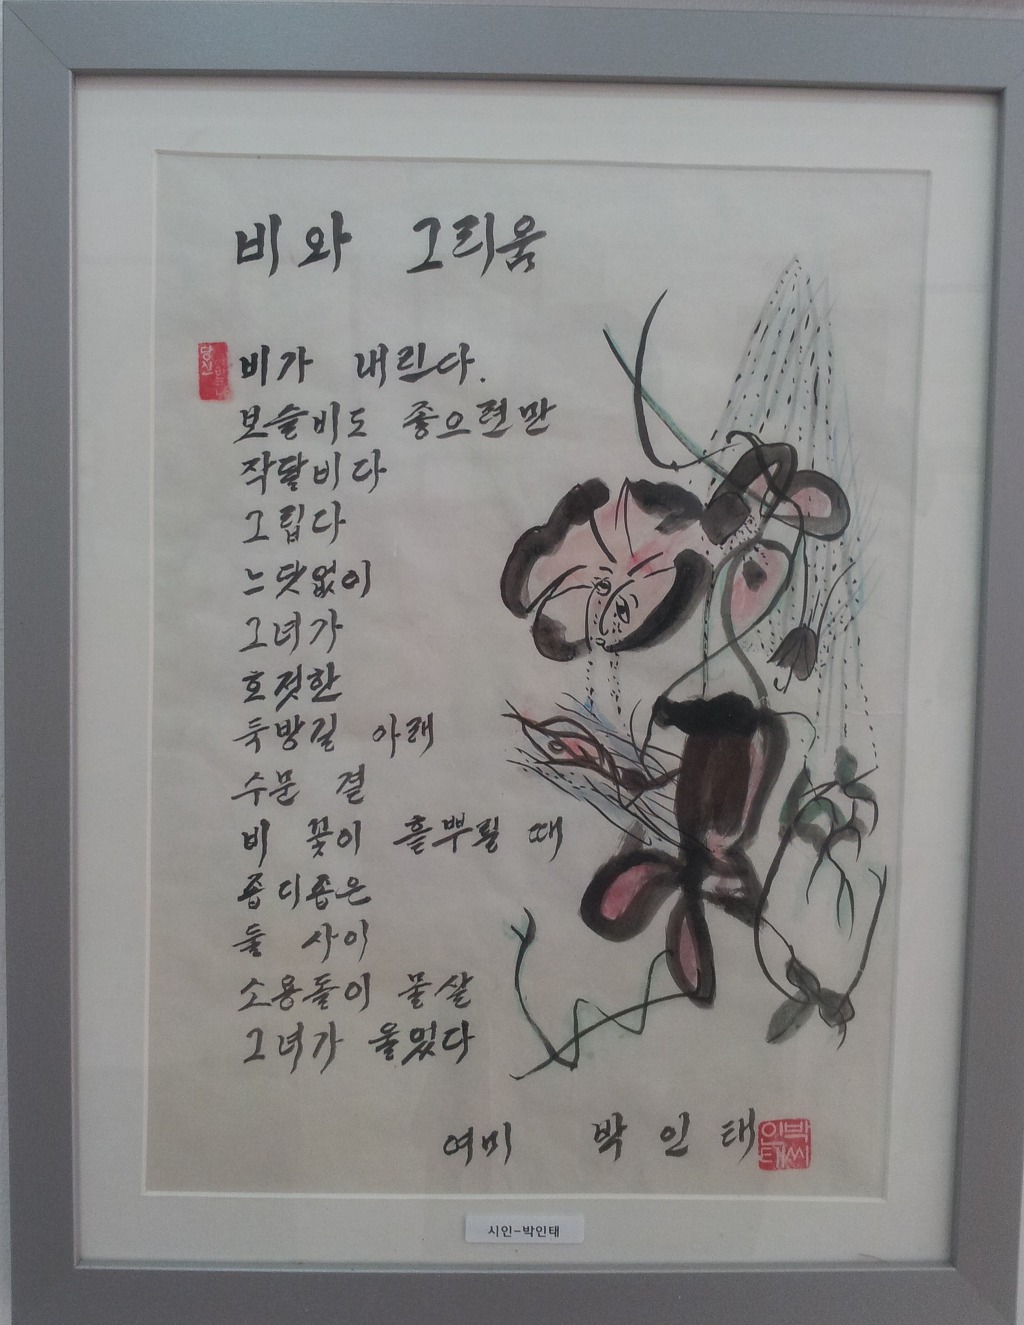 비와 그리움
비가 내린다.
보슬비도 좋으련만
작달비다
그립다
느닷없이
그녀가
호젓한
둑방길 아래
수문 곁
비 꽃이 흩뿌릴 때
좁디좁은
둘 사이
소용돌이 물살
그녀가 울었다
여미 박인태
박씨
인태
당신
시인-박인태